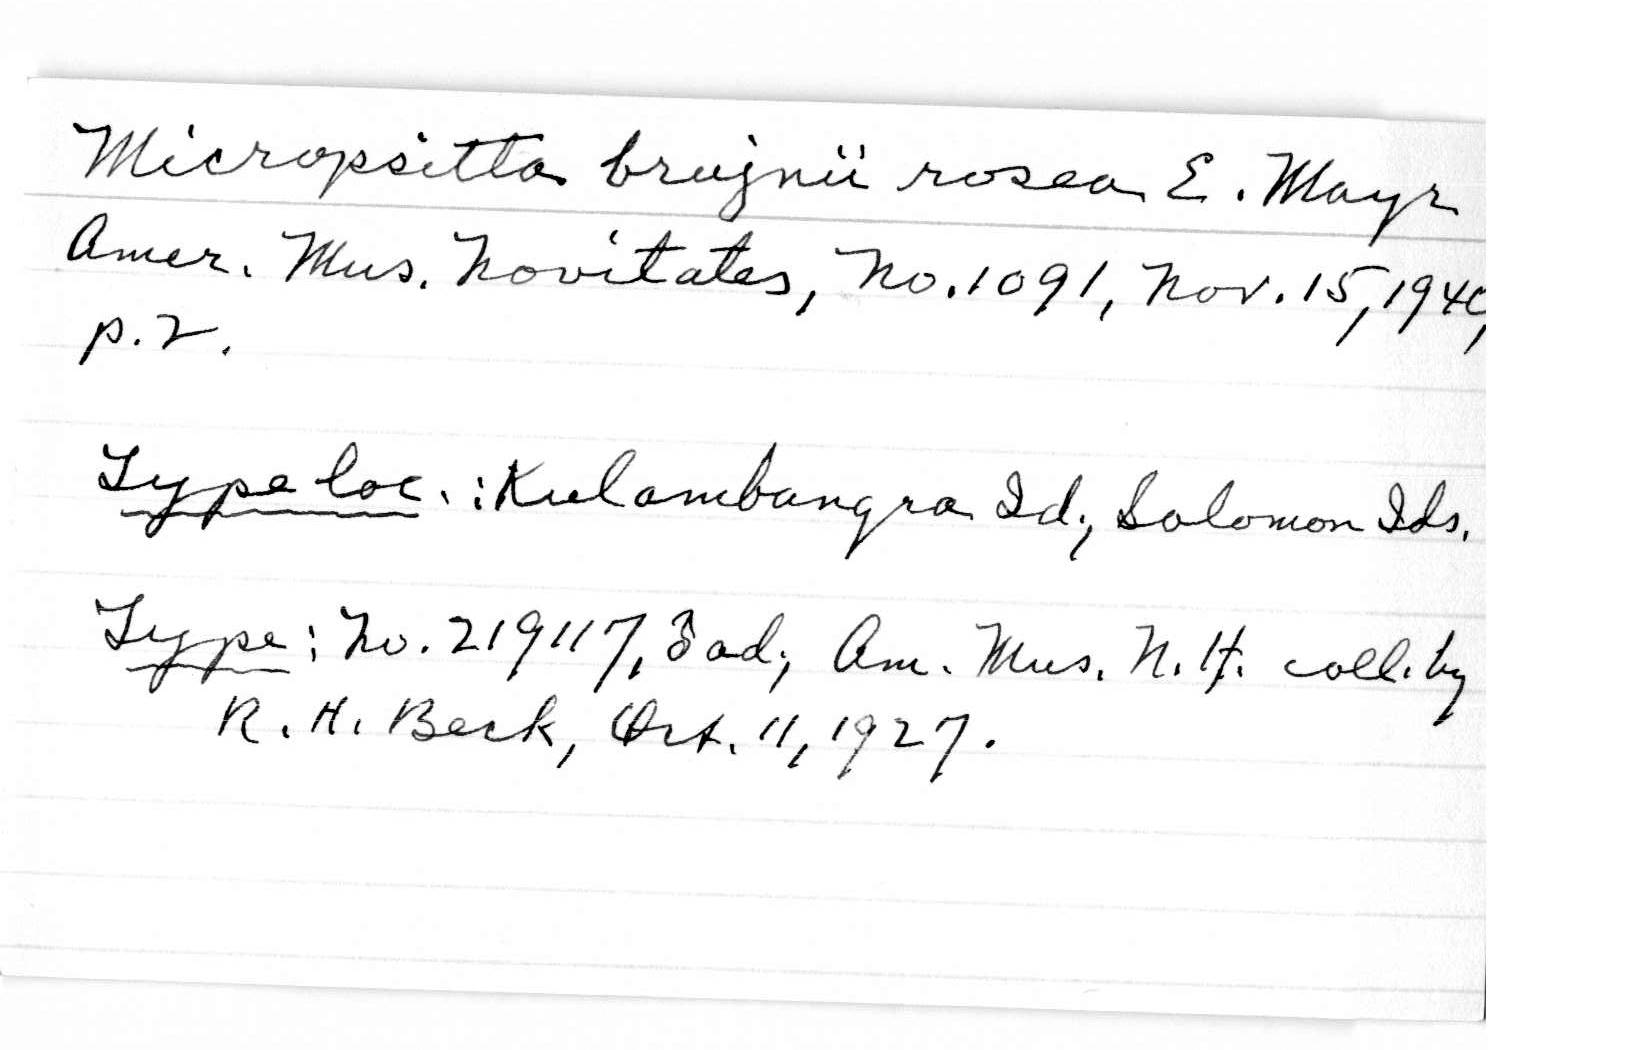 Micropsitta bruijnii rosea E. Mayr
Amer. Mus. Novitates, No. 1091, Nov. 15, 1940,
p. 2.
Type loc. : Kulambangra Id., Solomon Ids.
Type : No. 219117, ♂ ad., Am. Mus. N. H. coll. by
R. H. Beck, Oct. 11, 1927.